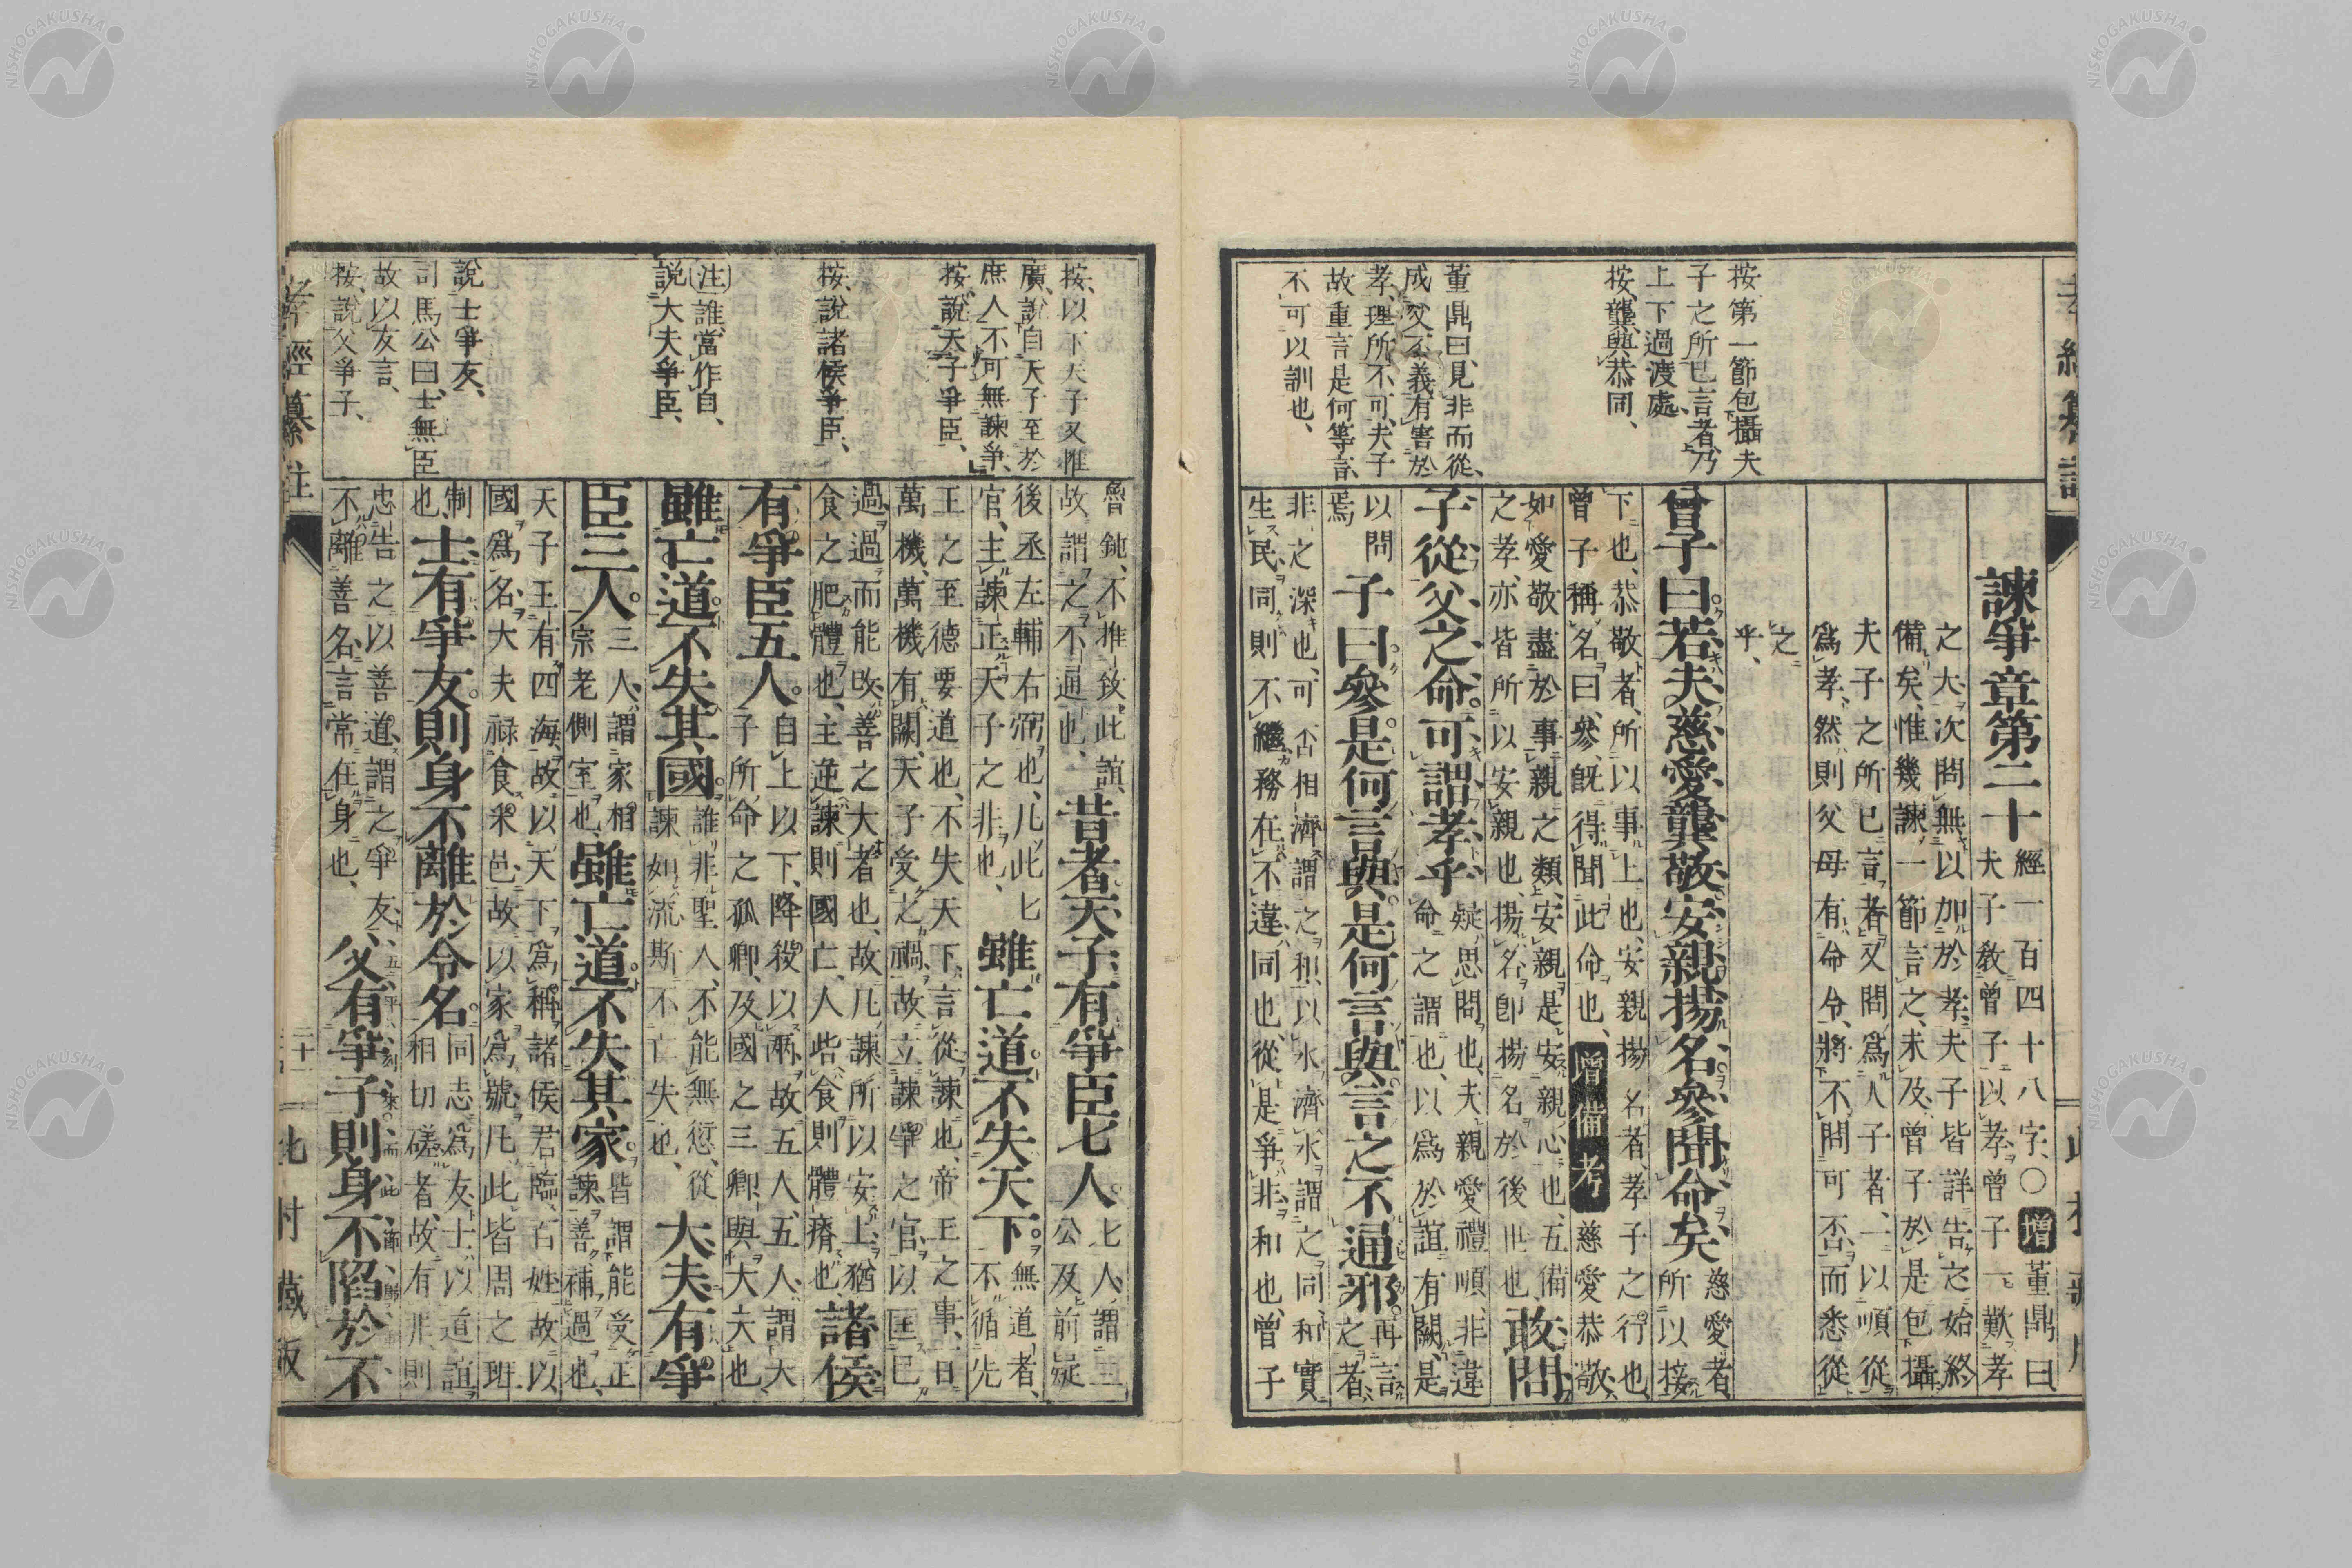 諫爭章第二十
經一百四十八字、○增董鼎曰
夫子敎曾子以孝曾子一歎孝
之大、次問無以加於孝、夫子皆詳告之始終
備矣、惟幾諫一節言之未及、曾子於是包攝
夫子之所已言者又問爲人子者、一以順從
爲孝、然則父母有命令、將不問可否而悉從
之
乎、
曾子曰若夫慈愛龔敬安親揚名參聞命矣
慈愛者
所以接
下也、恭敬者、所以事上也、安親揚名者、孝子之行也
曾子稱名曰、參、旣得聞此命也、增備考慈愛恭敬
如愛敬盡於事親之類、安親是安親心也、五備
之孝、亦皆所以安親也、揚名卽揚名於後世也
敢問
子從父之命可謂孝乎
疑思問也、夫親愛禮順、非違
命之謂也、以爲於誼有闕、是
以問
焉
子曰參是何言與是何言與言之不通邪
再言
之者、
非之深也、可否相濟謂之和、以水濟水謂之同、和實
生民、同則不繼、務在不違同也、從是爭非和也、曾子
按第一節包攝夫
子之所已言者、乃
上下過渡處
按、龔與恭同、
董鼎曰、見非而從、
成父不義有害於
孝、理所不可、夫子
故重言是何等言、
不可以訓也、
魯鈍、不推致此誼、
故謂之不通也、
昔者天子有爭臣七人
七人、謂三
公及前疑
後丞左輔右弼也、凡此七
官、主諫正天子之非也、
雖亡道不失天下
無道者、
不循先
王之至德要道也、不失天下、言從諫也、帝王之事、一日
萬機、萬機有闕、天子受之禍、故立諫爭之官、以匡己
過、過而能改、善之大者也、故凡諫所以安上、猶
食之肥體也、主逆諫則國亡、人呰食則體瘠也、
諸侯
有爭臣五人
自上以下、降殺以兩、故五人、五人、謂大
子所命之孤卿、及國之三卿、與大夫也、
雖亡道不失其國
誰非聖人、不能無愆、從
諫如流斯不亡失也、
大夫有爭
臣三人
三人、謂家相
宗老側室也、
雖亡道不失其家
皆謂能受正
諫、善補過也、
天子王有四海、故以天下爲稱、諸侯君臨百姓、故以
國爲名、大夫祿食采邑、故以家爲號、凡此皆周之班
制
也、
士有爭友則身不離於令名
同志爲友、士以道誼
相切磋者、故有非、則
忠告之以善道、謂之爭友、
不離善名、言常在身也、
父有爭子則身不陷於不
按、以下天子又惟
廣說自天子至於
庶人不可無諫爭、
按、說天子爭臣、
按、說諸侯爭臣、
注誰、當作自、
說大夫爭臣、
說士爭友、
司馬公曰、士無臣
故以友言、
按、說父爭子、
孝經纂註